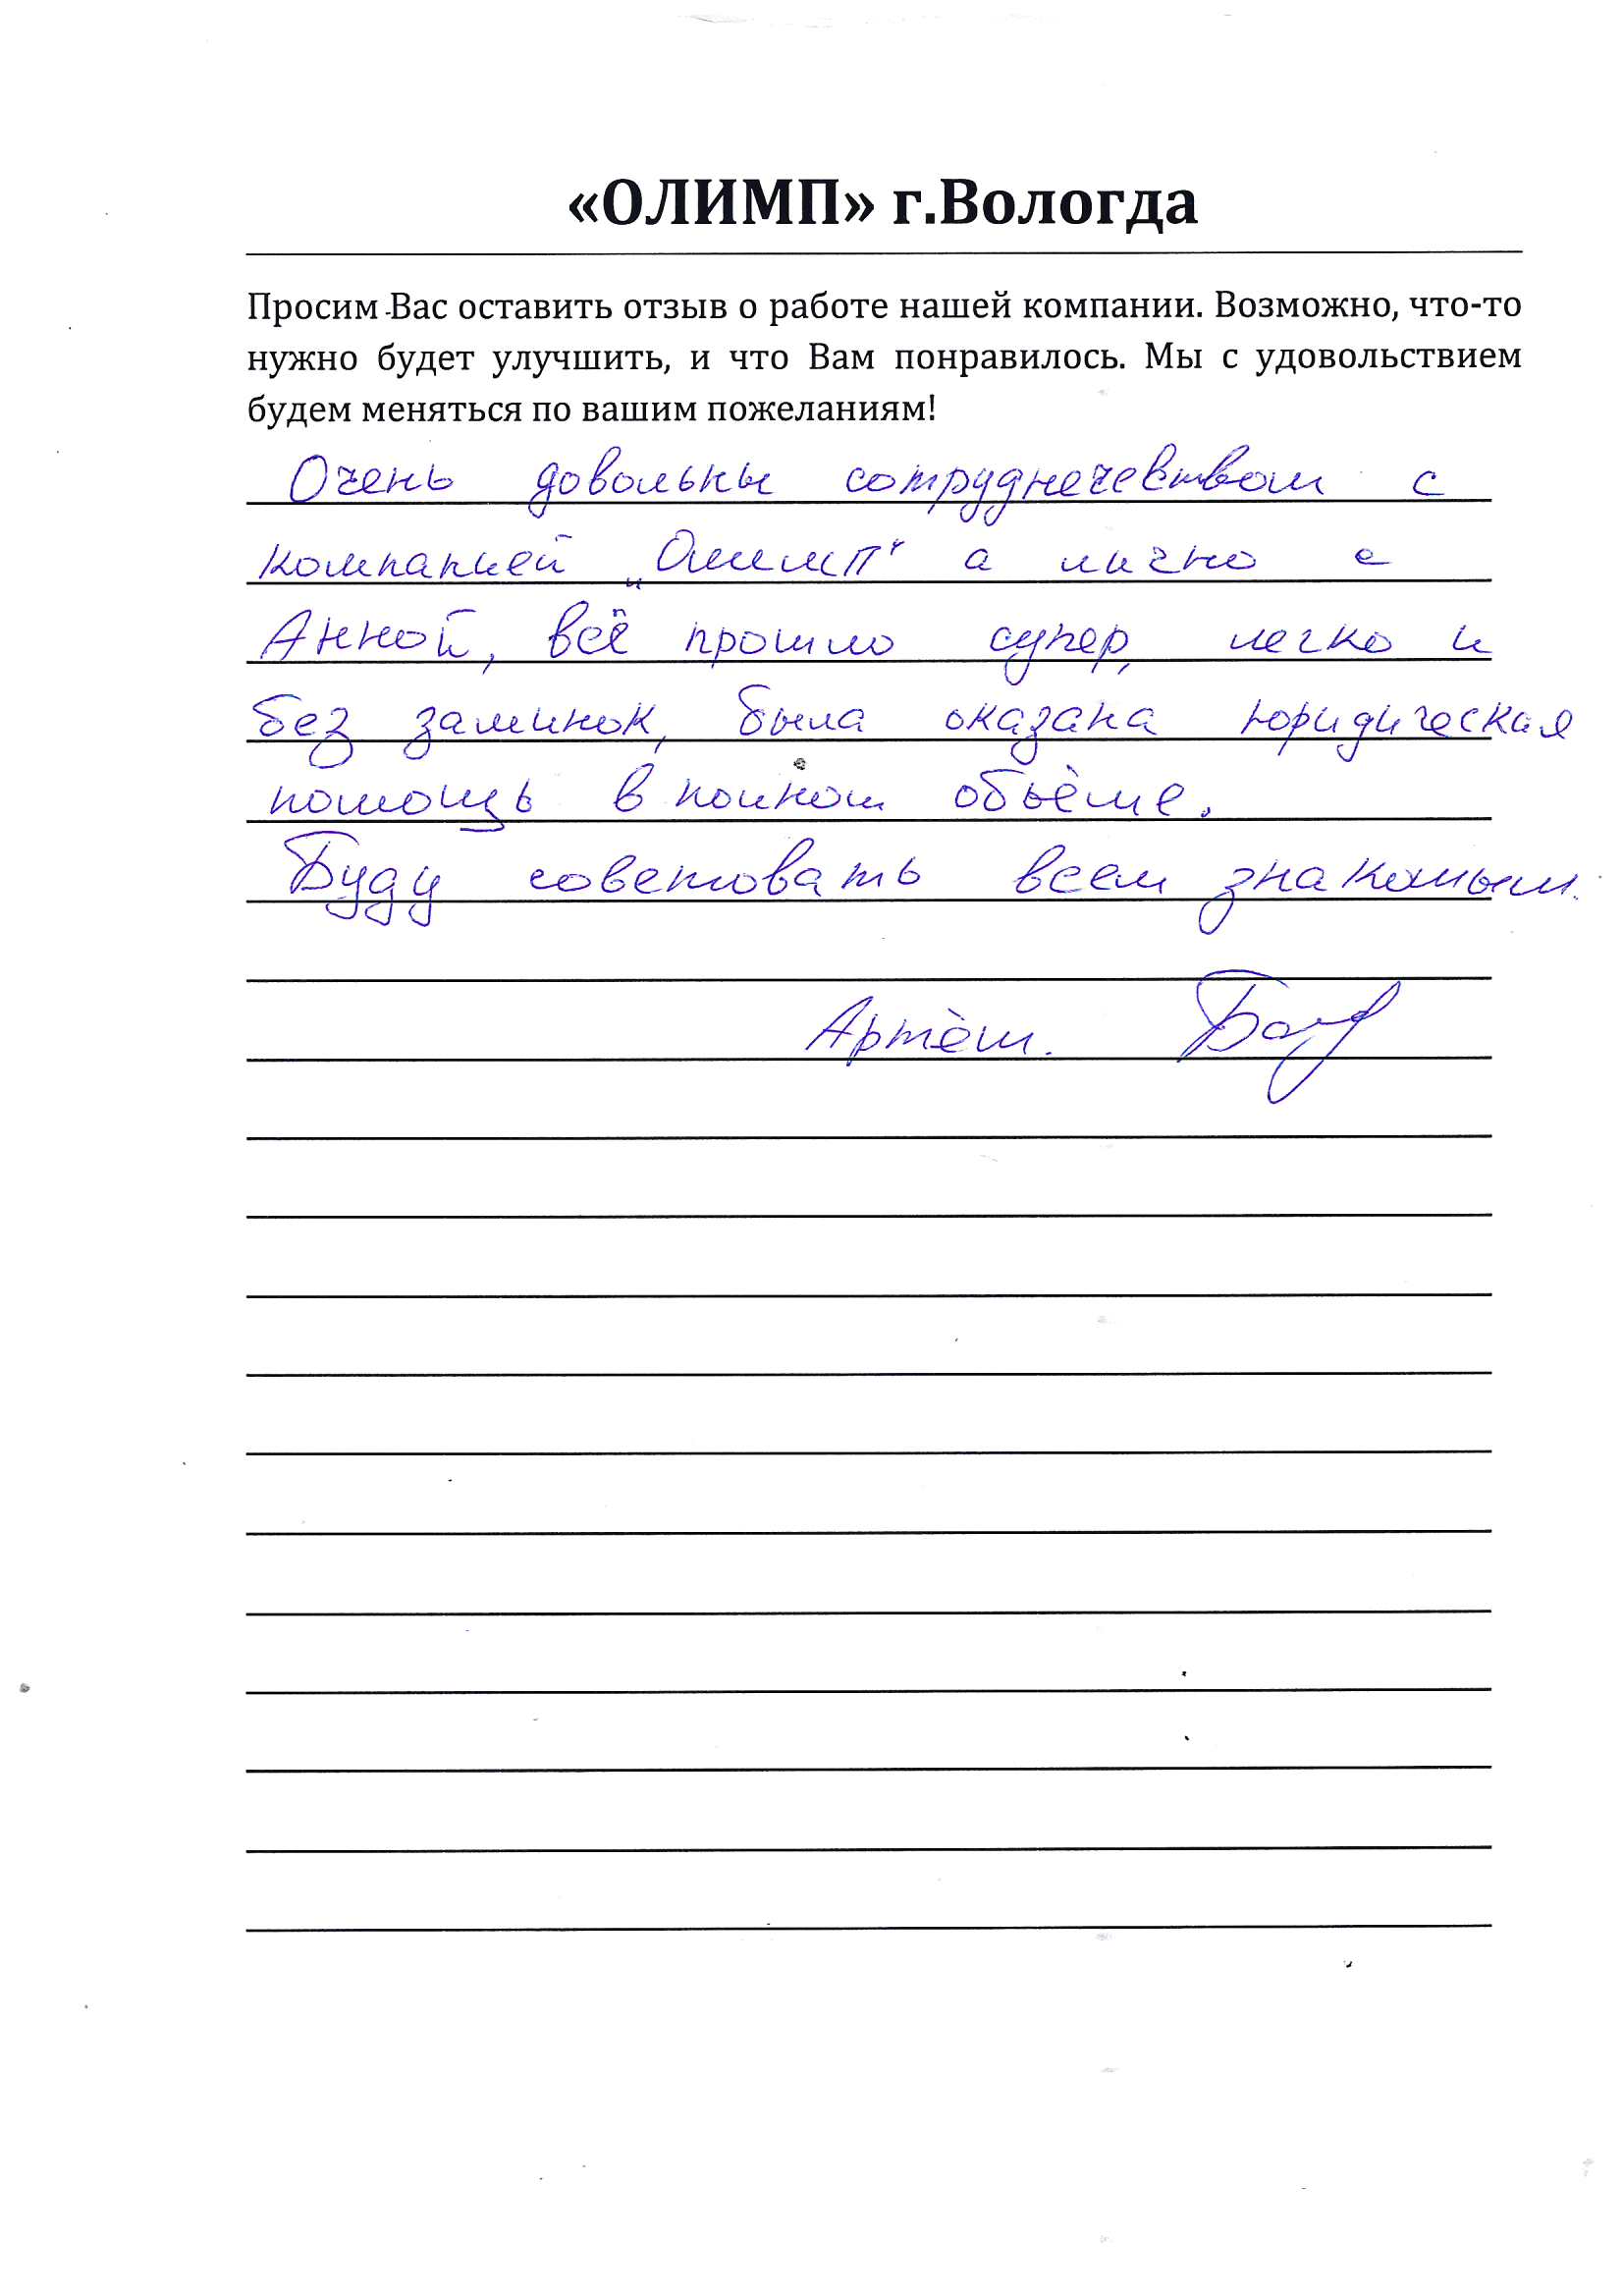 «ОЛИМП» г.Вологда
Просим Вас оставить отзыв о работе нашей компании. Возможно, что-то
нужно будет улучшить, и что Вам понравилось. Мы с удовольствием
будем меняться по вашим пожеланиям!
Очень довольны сотруднечевством с
компанией „Олимп“ а лично с
Анной, всё прошло супер, легко и
без заминок, была оказана юридическая
помощь в полном объёме.
Буду советовать всем знакомым.
Артём.